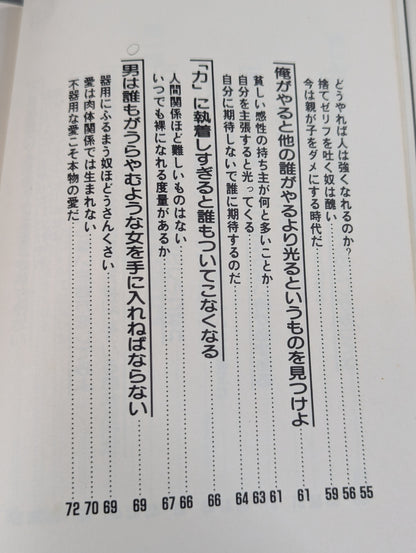 どうやれば人は強くなれるのか？……55
捨てゼリフを吐く奴は醜い……56
今は親が子をダメにする時代だ……59
俺がやると他の誰がやるより光るというものを見つけよ……61
貧しい感性の持ち主が何と多いことか……61
自分を主張すると光ってくる……63
自分に期待しないで誰に期待するのだ……64
「力」に執着しすぎると誰もついてこなくなる……66
人間関係ほど難しいものはない……66
いつでも裸になれる度量があるか……67
男は誰もがうらやむような女を手に入れねばならない……69
器用にふるまう奴ほどうさんくさい……69
愛は肉体関係では生まれない……70
不器用な愛こそ本物の愛だ……72